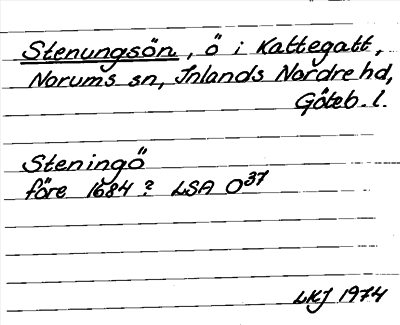 Stenungsön, ö i Kattegatt,
Norums sn, Inlands Nordre hd,
Göteb. l.
Steningö
före 1684? LSA O37
LKJ 1974